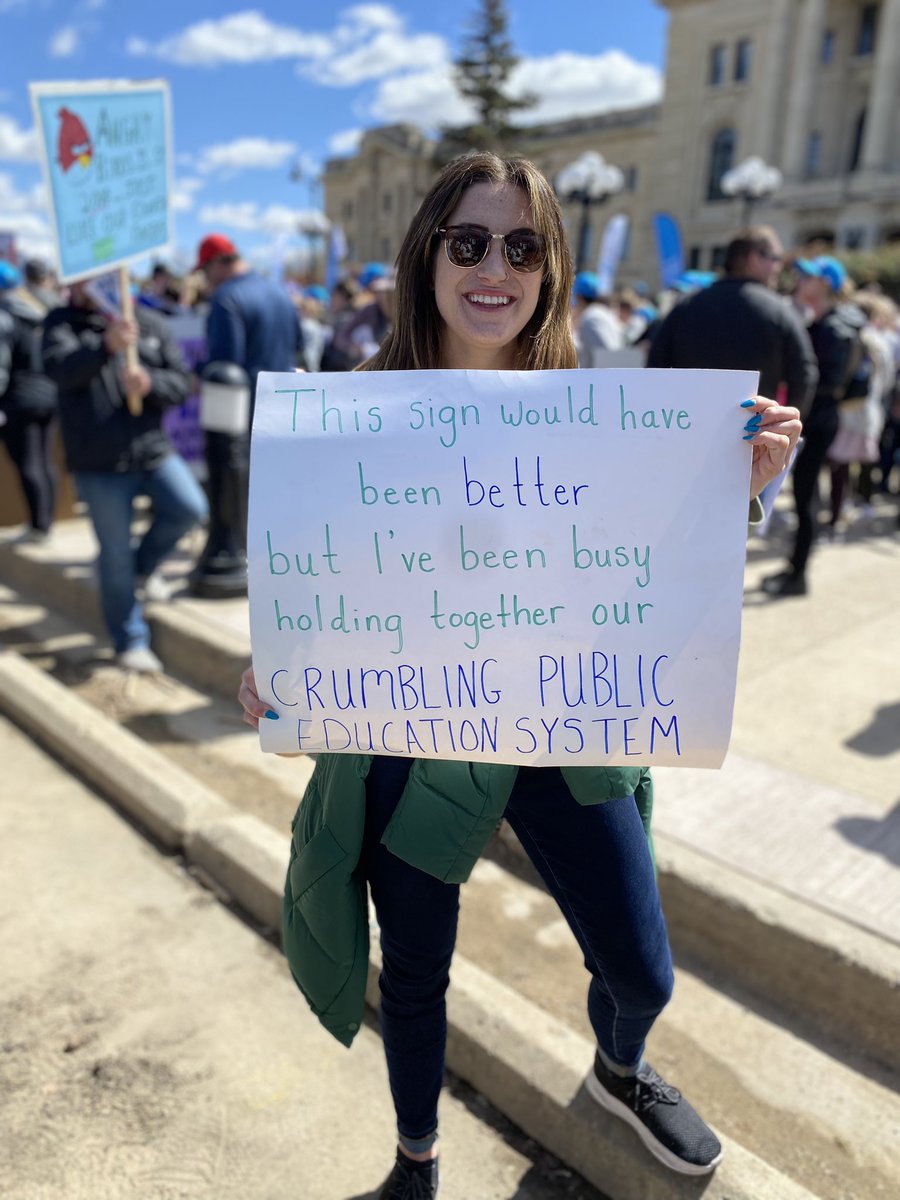 This sign would have
been better
but I've been busy
holding together our
CRUMBLING PUBLIC
EDUCATION SYSTEM
ANGRY